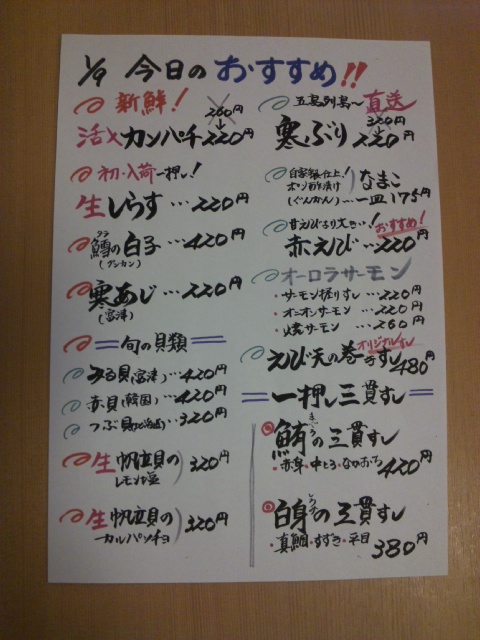 1/9 今日のおすすめ!!
新鮮!
260円
活〆カンパチ 220円
初・入荷一押し!
生しらす…220円
タラ
鱈の白子…420円
(グンカン)
寒あじ…220円
(富津)
旬の貝類
みる貝(富津)…420円
赤貝(韓国)…420円
つぶ貝(北海道)…320円
生帆立貝の
レモンと塩
320円
生帆立貝の
カルパッチョ
320円
五島列島〜直送
320円
寒ぶり 220円
自家製仕上!
ポン酢漬け
(ぐんかん)
なまこ
一皿175円
甘えびより大きい!
おすすめ!
赤えび…220円
オーロラサーモン
・サーモン握りすし…220円
・オニオンサーモン…220円
・焼サーモン…260円
オリジナルすし
えび天の巻きすし 480円
一押し三貫すし
まぐろ
鮪の三貫すし
・赤身・中とろ・なかおち 420円
しろみ
白身の三貫すし
・真鯛・すずき・平目 380円